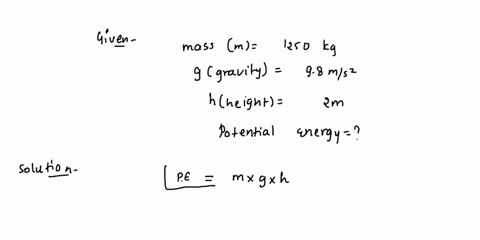 Given-
mass (m)= 1250 kg
g (gravity) = 9.8 m/s²
h (height) = 2m
Potential energy = ?
Solution-
P.E = m x g x h